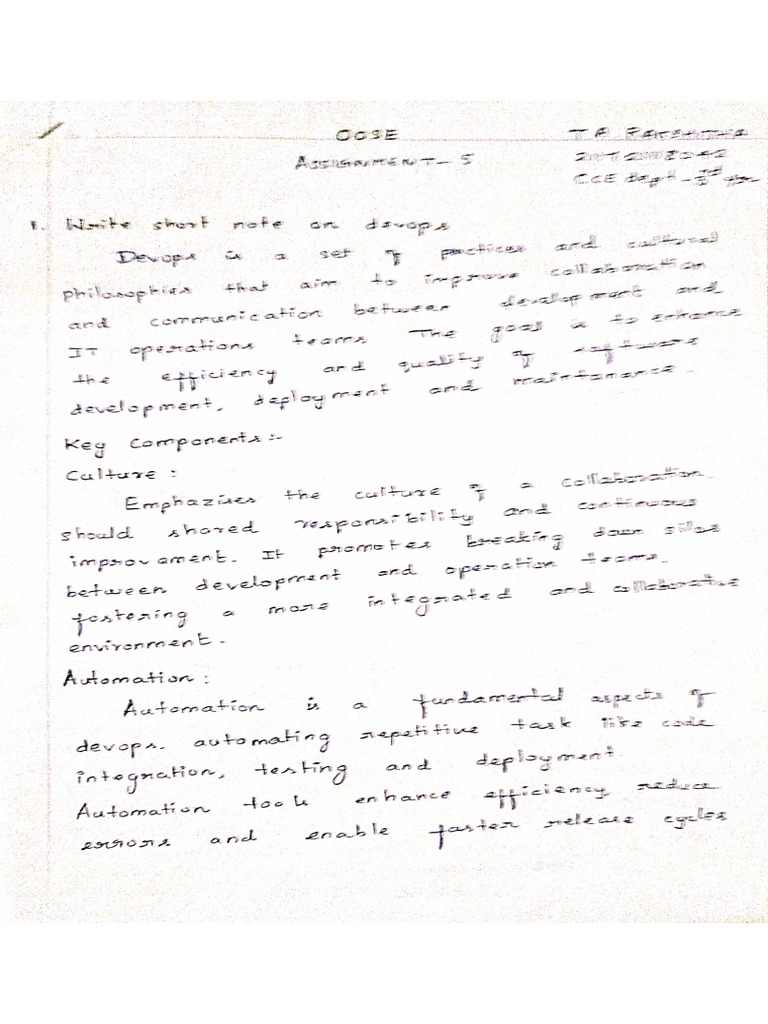 OOSE
T P RAKSHITHA
ASSIGNMENT-5
CCE Dept
1. Write short note on devops
Devops is a set of practices and cultural
philosophies that aim to improve collaboration
and communication between development and
IT operations teams. The goal is to enhance
the efficiency and quality of software
development, deployment and maintanance.
Key Components:-
Culture:
Emphazises the culture of a collaboration
should shared responsibility and continuous
improvament. It promotes breaking down silos
between development and operation teams.
fostering a more integrated and collaborative
environment.
Automation:
Automation is a fundamental aspects of
devops. automating repetitive task like code
integration, testing and deployment.
Automation tools enhance efficiency reduce
errors and enable faster release cycles